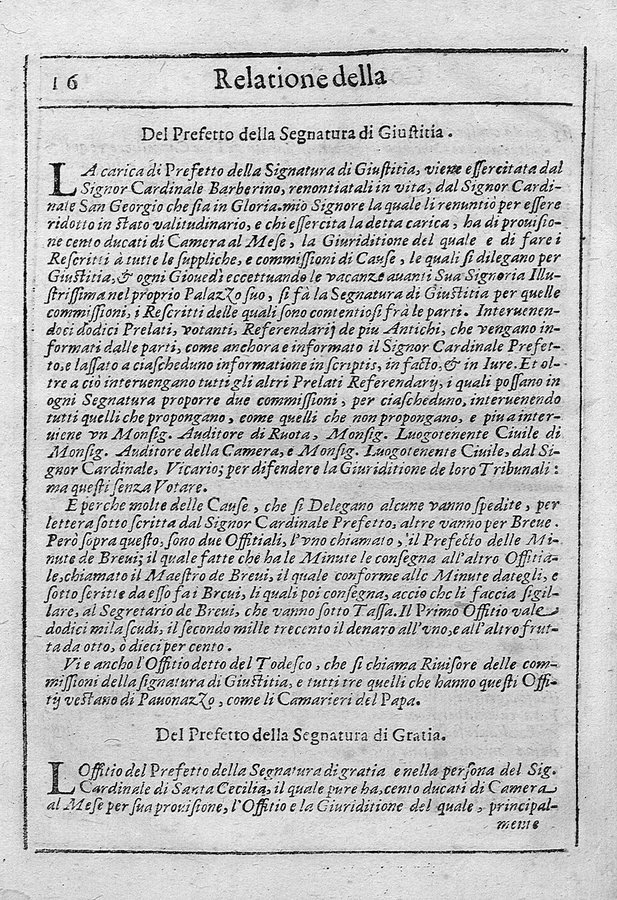 16
Relatione della
Del Prefetto della Segnatura di Giuſtitia.
LA carica di Prefetto della Signatura di Giuſtitia, viene eſſercitata dal
Signor Cardinale Barberino, renontiatali in vita, dal Signor Cardi-
nale San Georgio che ſia in Gloria mio Signore la quale li renuntiò per eſſere
ridotto in ſtato valitudinario, e chi eſſercita la detta carica, ha di prouiſio-
ne cento ducati di Camera al Meſe, la Giuriditione del quale e di fare i
Reſcritti à tutte le ſuppliche, e commiſſioni di Cauſe, le quali ſi dilegano per
Giuſtitia, & ogni Giouedì eccettuando le vacanze auanti Sua Signoria Illu-
ſtriſſima nel proprio Palazzo ſuo, ſi fà la Segnatura di Giuſtitia per quelle
commiſſioni, i Reſcritti delle quali ſono contentioſi frà le parti. Interuenen-
doci dodici Prelati, votanti, Referendarij de piu Antichi, che vengano in-
formati dalle parti, come anchora e informato il Signor Cardinale Prefet-
to, e laſſato a ciaſcheduno informatione in ſcriptis, in facto, & in Iure. Et ol-
tre a ciò interuengano tutti gli altri Prelati Referendary, i quali poſſano in
ogni Segnatura proporre due commiſſioni, per ciaſcheduno, interuenendo
tutti quelli che propongano, come quelli che non propongano, e piu a inter-
uiene vn Monſig. Auditore di Ruota, Monſig. Luogotenente Ciuile di
Monſig. Auditore della Camera, e Monſig. Luogotenente Ciuile, dal Si-
gnor Cardinale, Vicario; per difendere la Giuriditione de loro Tribunali:
ma queſti ſenza Votare.
E perche molte delle Cauſe, che ſi Delegano alcune vanno ſpedite, per
lettera ſotto ſcritta dal Signor Cardinale Prefetto, altre vanno per Breue.
Però ſopra queſto, ſono due Offitiali, l'vno chiamato, il Prefecto delle Mi-
nute de Breui; il quale fatte che ha le Minute le conſegna all'altro Offitia-
le, chiamato il Maeſtro de Breui, il quale conforme alle Minute dategli, e
ſotto ſcritte da eſſo fa i Breui, li quali poi conſegna, accio che li faccia ſigil-
lare, al Segretario de Breui, che vanno ſotto Taſſa. Il Primo Offitio vale
dodici mila ſcudi, il ſecondo mille trecento il denaro all'vno, e all'altro frut-
ta da otto, ò dieci per cento.
Vi e ancho l'Offitio detto del Todeſco, che ſi chiama Riuiſore delle com-
miſſioni della ſignatura di Giuſtitia, e tutti tre quelli che hanno queſti Offi-
tij veſtano di Pauonazzo, come li Camarieri del Papa.
Del Prefetto della Segnatura di Gratia.
L'Offitio del Prefetto della Segnatura di gratia e nella perſona del Sig.
Cardinale di Santa Cecilia, il quale pure ha, cento ducati di Camera
al Meſe per ſua prouiſione, l'Offitio e la Giuriditione del quale, principal-
mente